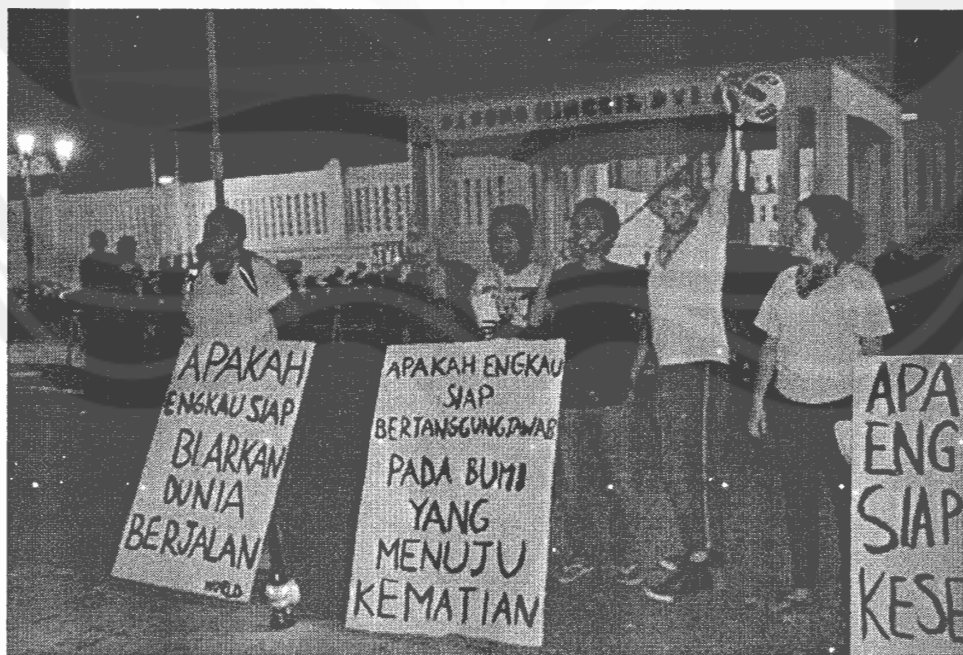 APAKAH
ENGKAU SIAP
BIARKAN
DUNIA
BERJALAN
APAKAH ENGKAU
SIAP
BERTANGGUNGJAWAB
PADA BUMI
YANG
MENUJU
KEMATIAN
APA
ENG
SIAP
KESE